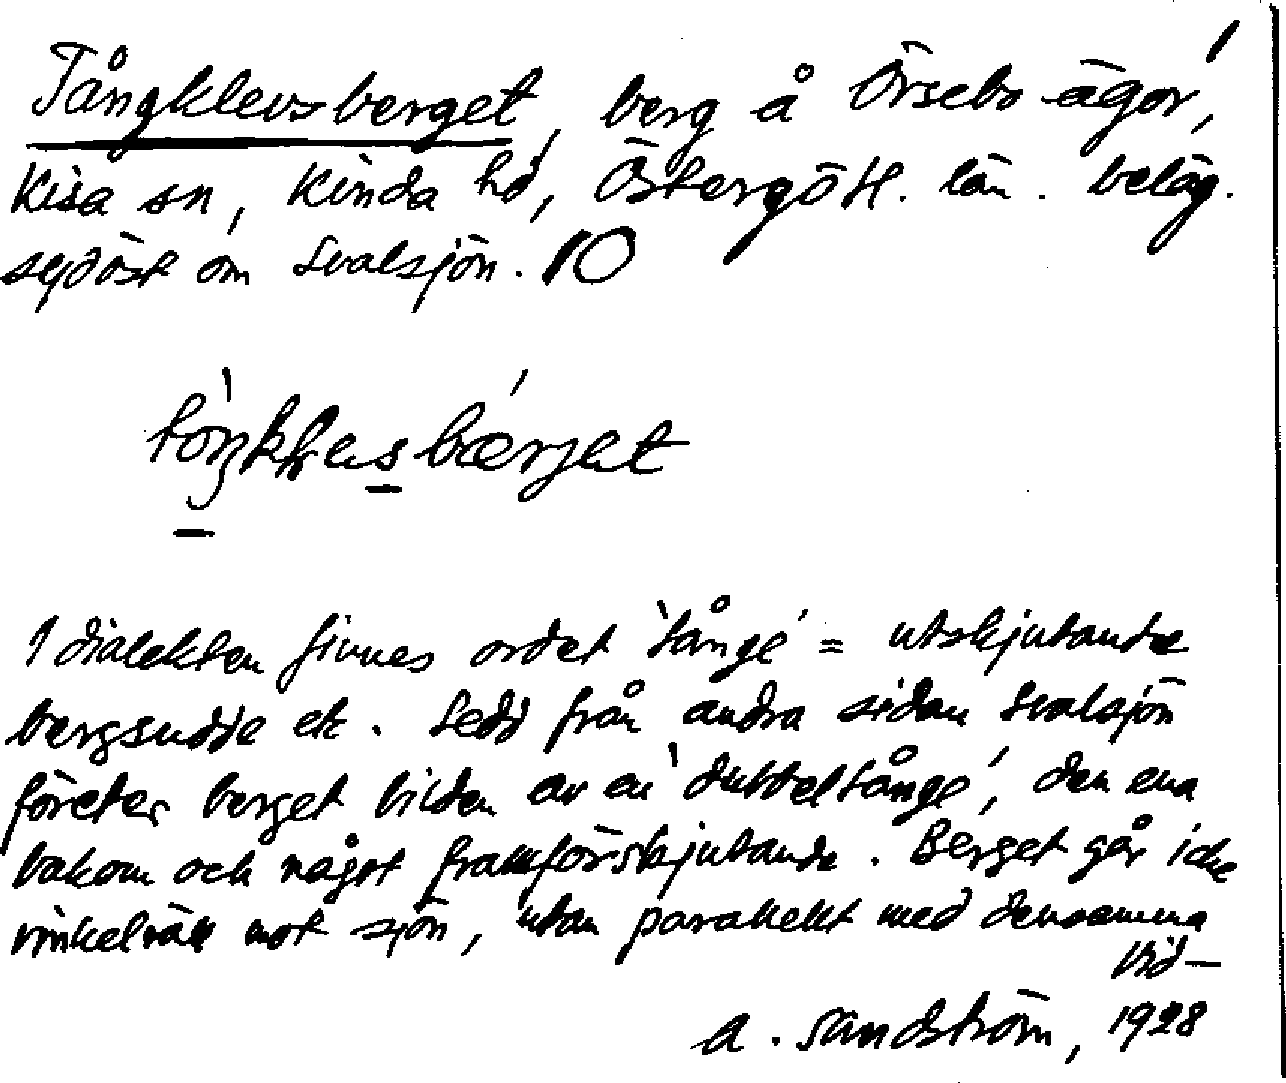 Tångklevsberget, berg å Örsebo ägor,
Kisa sn, Kinda hd, Östergötl. län. beläg.
sydöst om Svalsjön. 10
I dialekten finnes ordet 'tånge' = utskjutande
bergsudde etc. Sedd från andra sidan Svalsjön
företer berget bilden av en 'dubbeltånge', den ena
bakom och något framförskjutande. Berget går icke
vinkelrätt mot sjön, utan parallellt med densamma
Vid—
A. Sandström, 1928